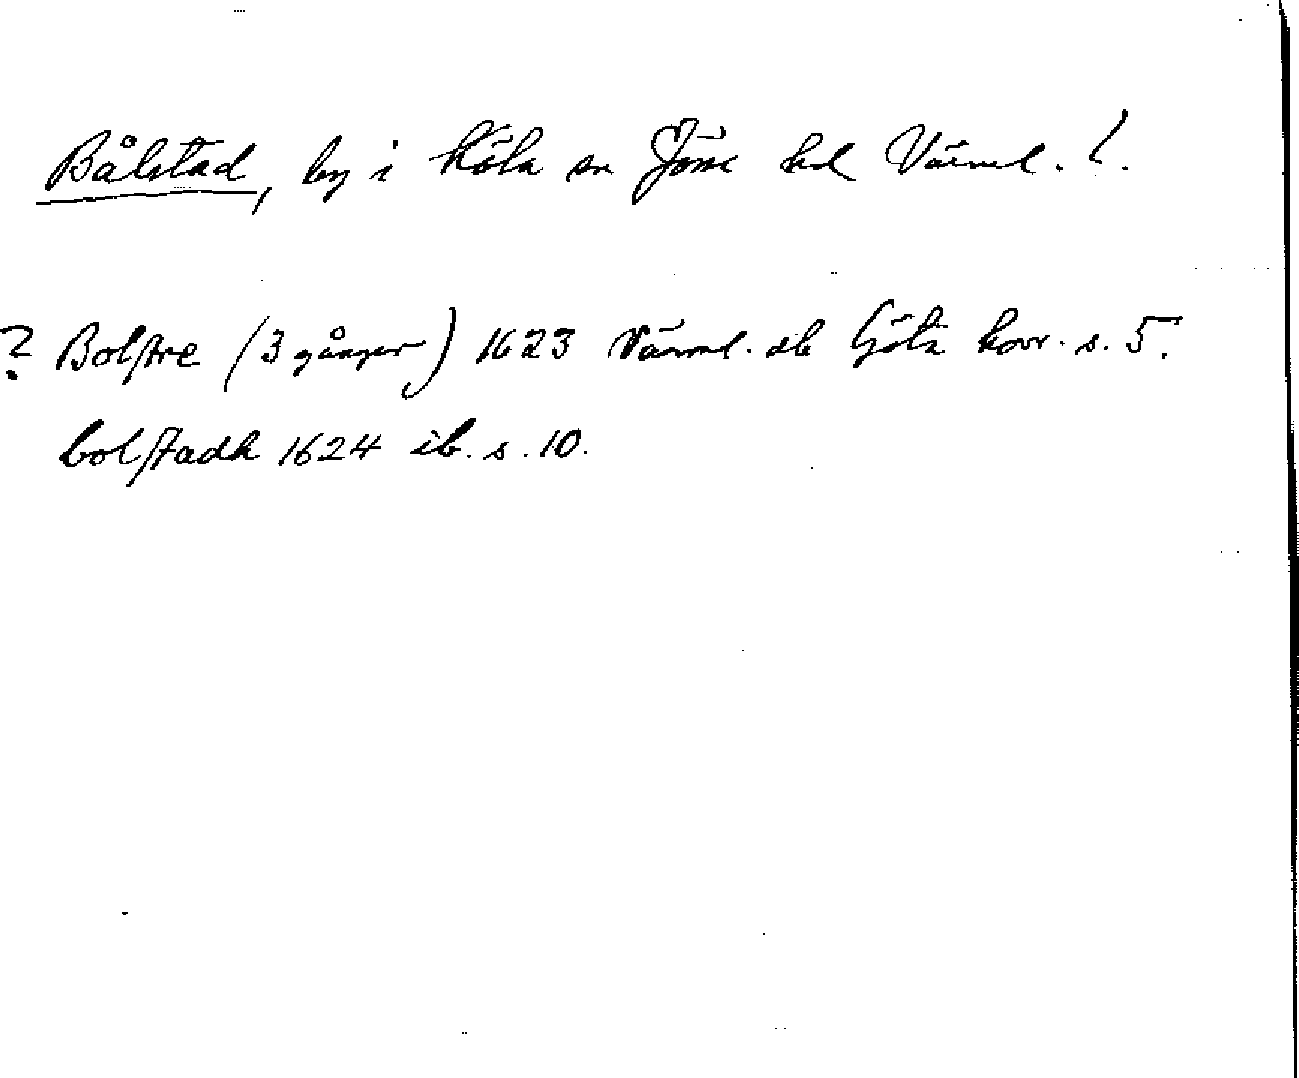 Bålstad, by i Köla sn Jösse hd Värml. l.
? Bolstre (3 gånger) 1623 Värml. db Göta hovr. s. 5.
bolstadh 1624 ib. s. 10.